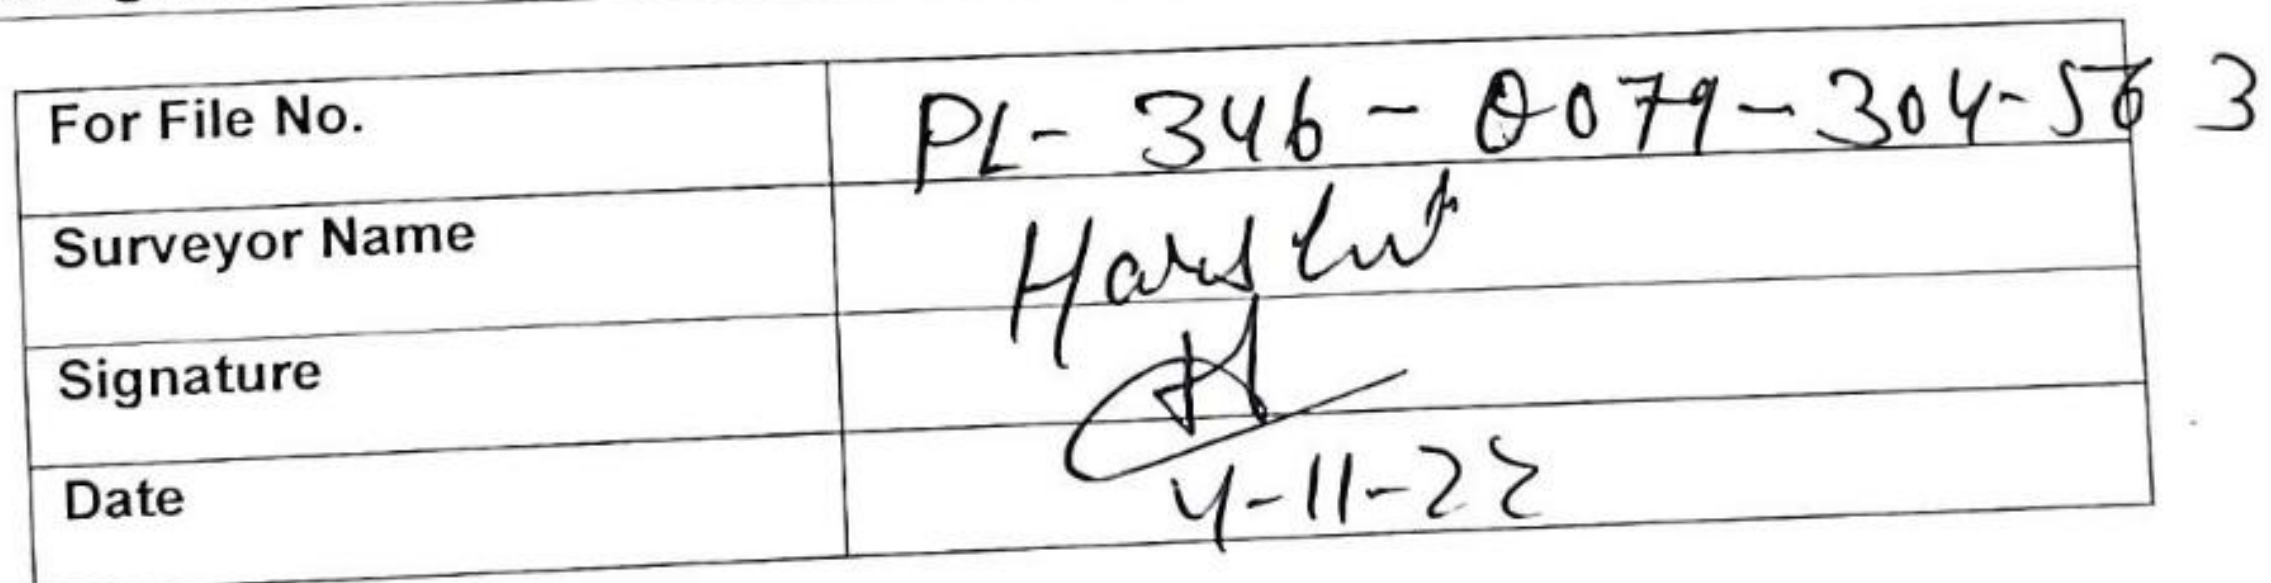 For File No. PL- 346 - 0079 - 304-563
Surveyor Name Harshit
Signature
Date 4-11-22